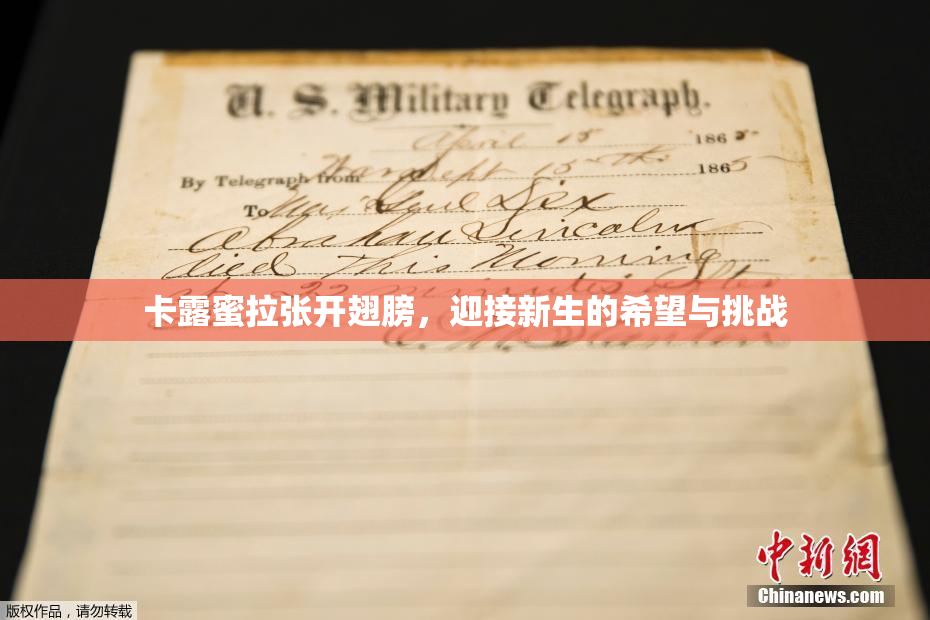 U. S. Military Telegraph.
April 15 1865
By Telegraph from War Dept 15th 1865
To Maj Genl Dix
Abraham Lincoln
died This Morning
at 22 minutes after
卡露蜜拉张开翅膀，迎接新生的希望与挑战
E. M. Stanton
中新网
Chinanews.com
版权作品，请勿转载